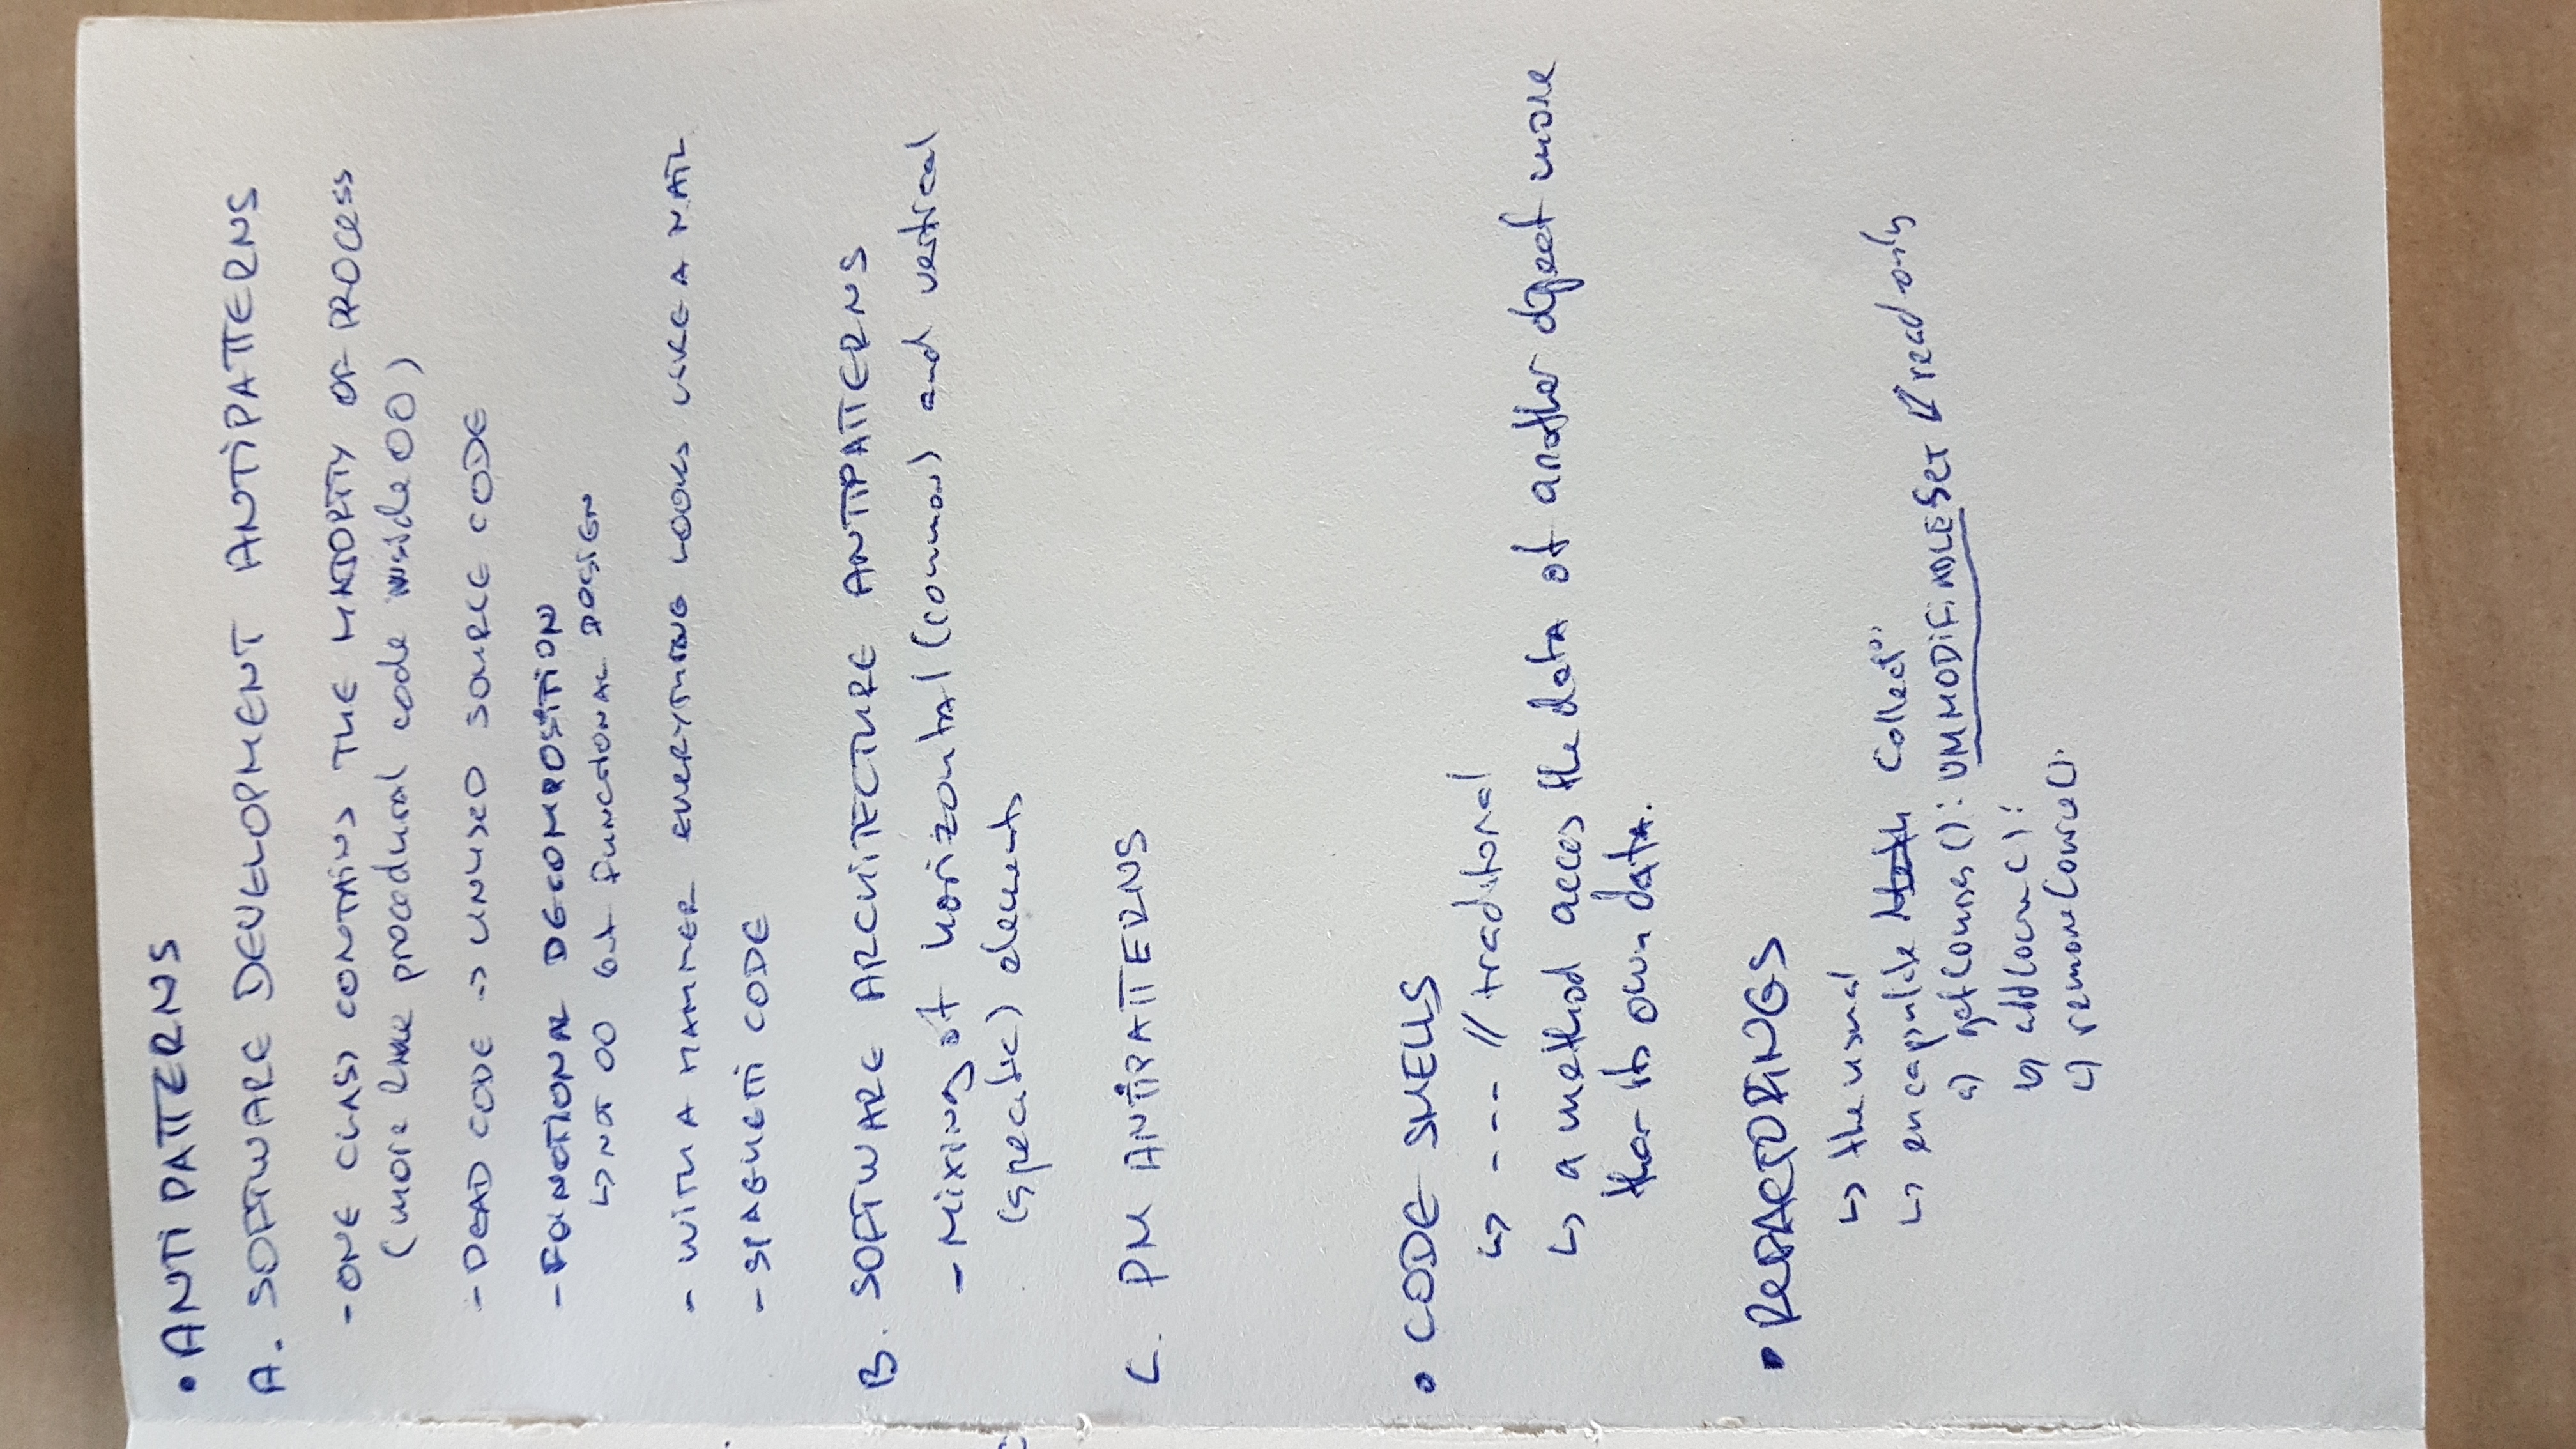 • ANTIPATTERNS
A. SOFTWARE DEVELOPMENT ANTIPATTERNS
- ONE CLASS CONTAINS THE MAJORITY OF PROCESS
(more like procedural code inside OO)
- DEAD CODE -> UNUSED SOURCE CODE
- FUNCTIONAL DECOMPOSITION
↳ NOT OO but FUNCTIONAL DESIGN
- WITH A HAMMER EVERYTHING LOOKS LIKE A NAIL
- SPAGHETTI CODE
B. SOFTWARE ARCHITECTURE ANTIPATTERNS
- Mixing of horizontal (common) and vertical
(specific) elements
C. PM ANTIPATTERNS
• CODE SMELLS
↳ --- // traditional
↳ a method acces the data of another object more
than its own data.
• REFACTORINGS
↳ the usual
↳ encapsulate Collect°
a) getCourses(): UNMODIFIABLESET ↙ read only
b) addCourse():
c) removeCourse():